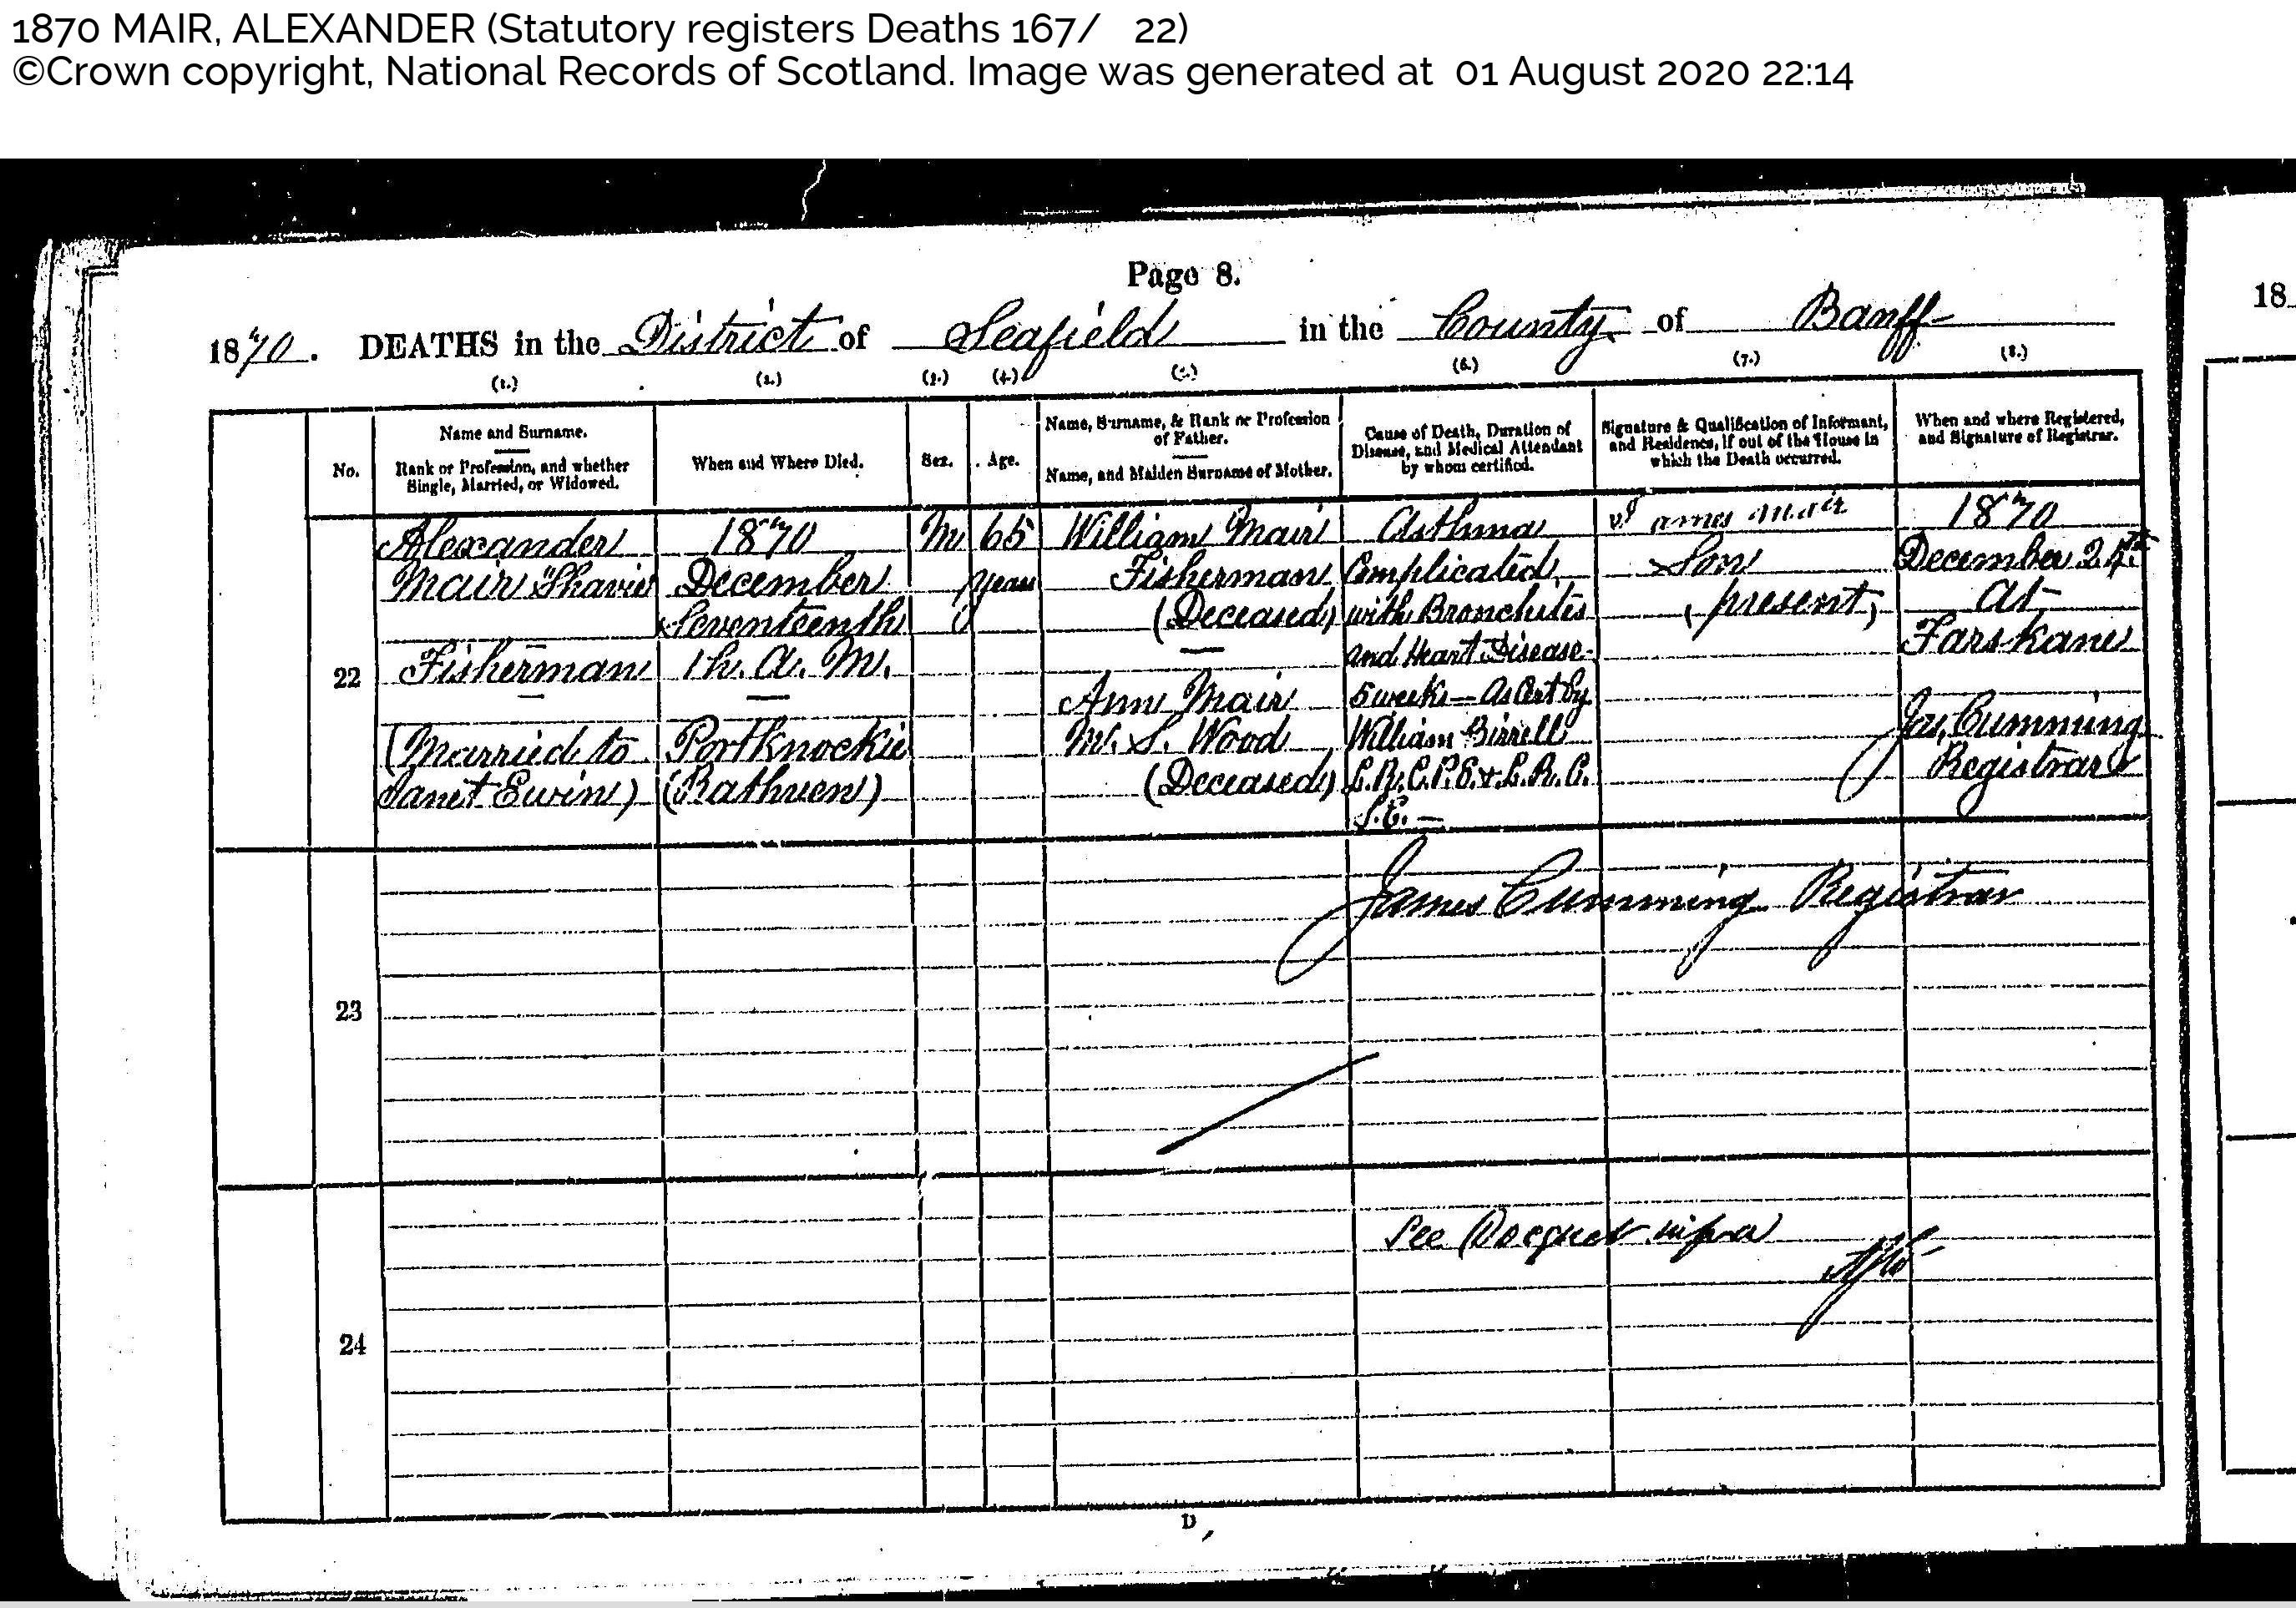 1870 MAIR, ALEXANDER (Statutory registers Deaths 167/ 22)
©Crown copyright, National Records of Scotland. Image was generated at 01 August 2020 22:14
Page 8.
1870. DEATHS in the District of Seafield in the County of Banff
18
(1.) (2.) (3.) (4.) (5.) (6.) (7.) (8.)
No.
Name and Surname.
Rank or Profession, and whether
Single, Married, or Widowed.
When and Where Died.
Sex.
Age.
Name, Surname, & Rank or Profession
of Father.
Name, and Maiden Surname of Mother.
Cause of Death, Duration of
Disease, and Medical Attendant
by whom certified.
Signature & Qualification of Informant,
and Residence, if out of the House in
which the Death occurred.
When and where Registered,
and Signature of Registrar.
22
Alexander
Mair
Fisherman
(Married to
Janet Ewin)
1870
December
Seventeenth
1h. A. M.
PortKnockie
(Rathven)
M
65
years
William Mair
Fisherman
(Deceased)
Ann Mair
M. S. Wood
(Deceased)
Asthma
Complicated
with Bronchites
and Heart Disease
5 weeks — As Cert by
William Birrell
L.R.C.P.E. & L.R.C.
S.E. —
James Mair
Son
(present)
1870
December 24th
At
Farskane
Jas. Cumming
Registrar
James Cumming Registrar
23
See Docquet infra
24
D